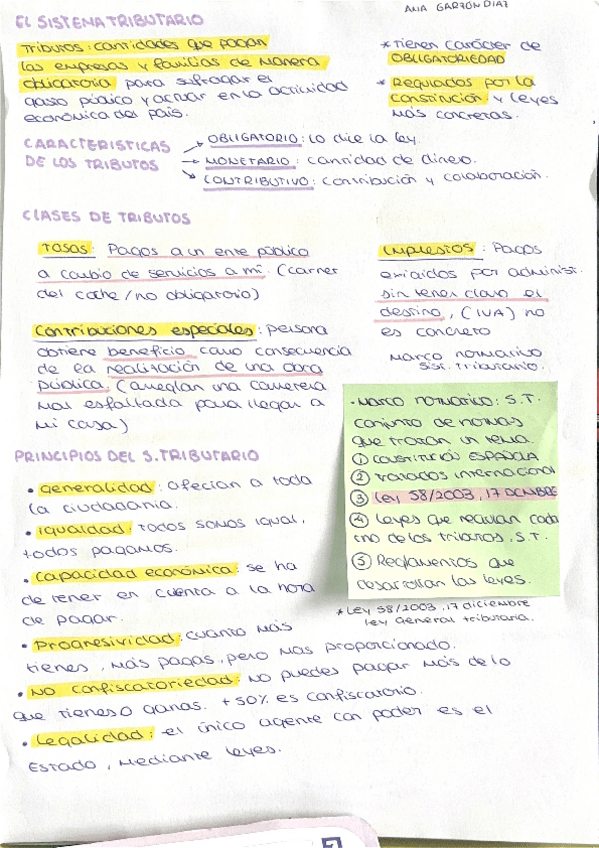 EL SISTEMA TRIBUTARIO
ANA GARZON DIAZ
Tributos: cantidades que pagan
las empresas y familias de manera
obligatoria para sufragar el
gasto público y actuar en la actividad
económica del país.
* Tienen carácter de
OBLIGATORIEDAD
* Regulados por la
constitución y leyes
más concretas.
CARACTERISTICAS
DE LOS TRIBUTOS
OBLIGATORIO: Lo dice la ley.
MONETARIO: cantidad de dinero.
CONTRIBUTIVO: contribución y colaboración.
CLASES DE TRIBUTOS
Tasas: Pagos a un ente público
a cambio de servicios a mi. (carnet
del coche / no obligatorio)
Impuestos: Pagos
exigidos por administ.
sin tener claro el
destino, (IVA) no
es concreto
Contribuciones especiales: persona
obtiene beneficio como consecuencia
de la realización de una obra
pública. (arreglan una carretera
mas esfaltada para llegar a
mi casa)
Marco normativo
Sist. Tributario.
• Marco normativo: S.T.
conjunto de normas
que tratan un tema.
① CONSTITUCIÓN ESPAÑOLA
② Tratados internacional
③ Ley 58/2003, 17 DICIEMBRE
④ Leyes que regulan cada
uno de los tributos, S.T.
⑤ Reglamentos que
desarrollan las leyes.
* Ley 58/2003, 17 diciembre
ley General tributaria.
PRINCIPIOS DEL S. TRIBUTARIO
• Generalidad: afecian a toda
la ciudadanía.
• Igualdad: todos somos igual,
todos pagamos.
• Capacidad económica: se ha
de tener en cuenta a la hora
de pagar.
• Progresividad: cuanto más
tienes, más pagas, pero más proporcionado.
• No confiscatoriedad: no puedes pagar más de lo
que tienes o ganas. +50% es confiscatorio.
• Legalidad: el único agente con poder es el
Estado, mediante leyes.